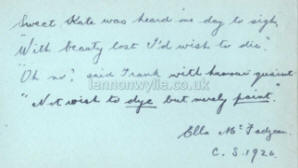 Sweet Kate was heard one day to sigh,
"With beauty lost I'd wish to die."
"Oh no" said Frank with humour quaint
"Not wish to dye but merely paint."
lennonwylie.co.uk
Ella McFadzean.
C.S. 1926.